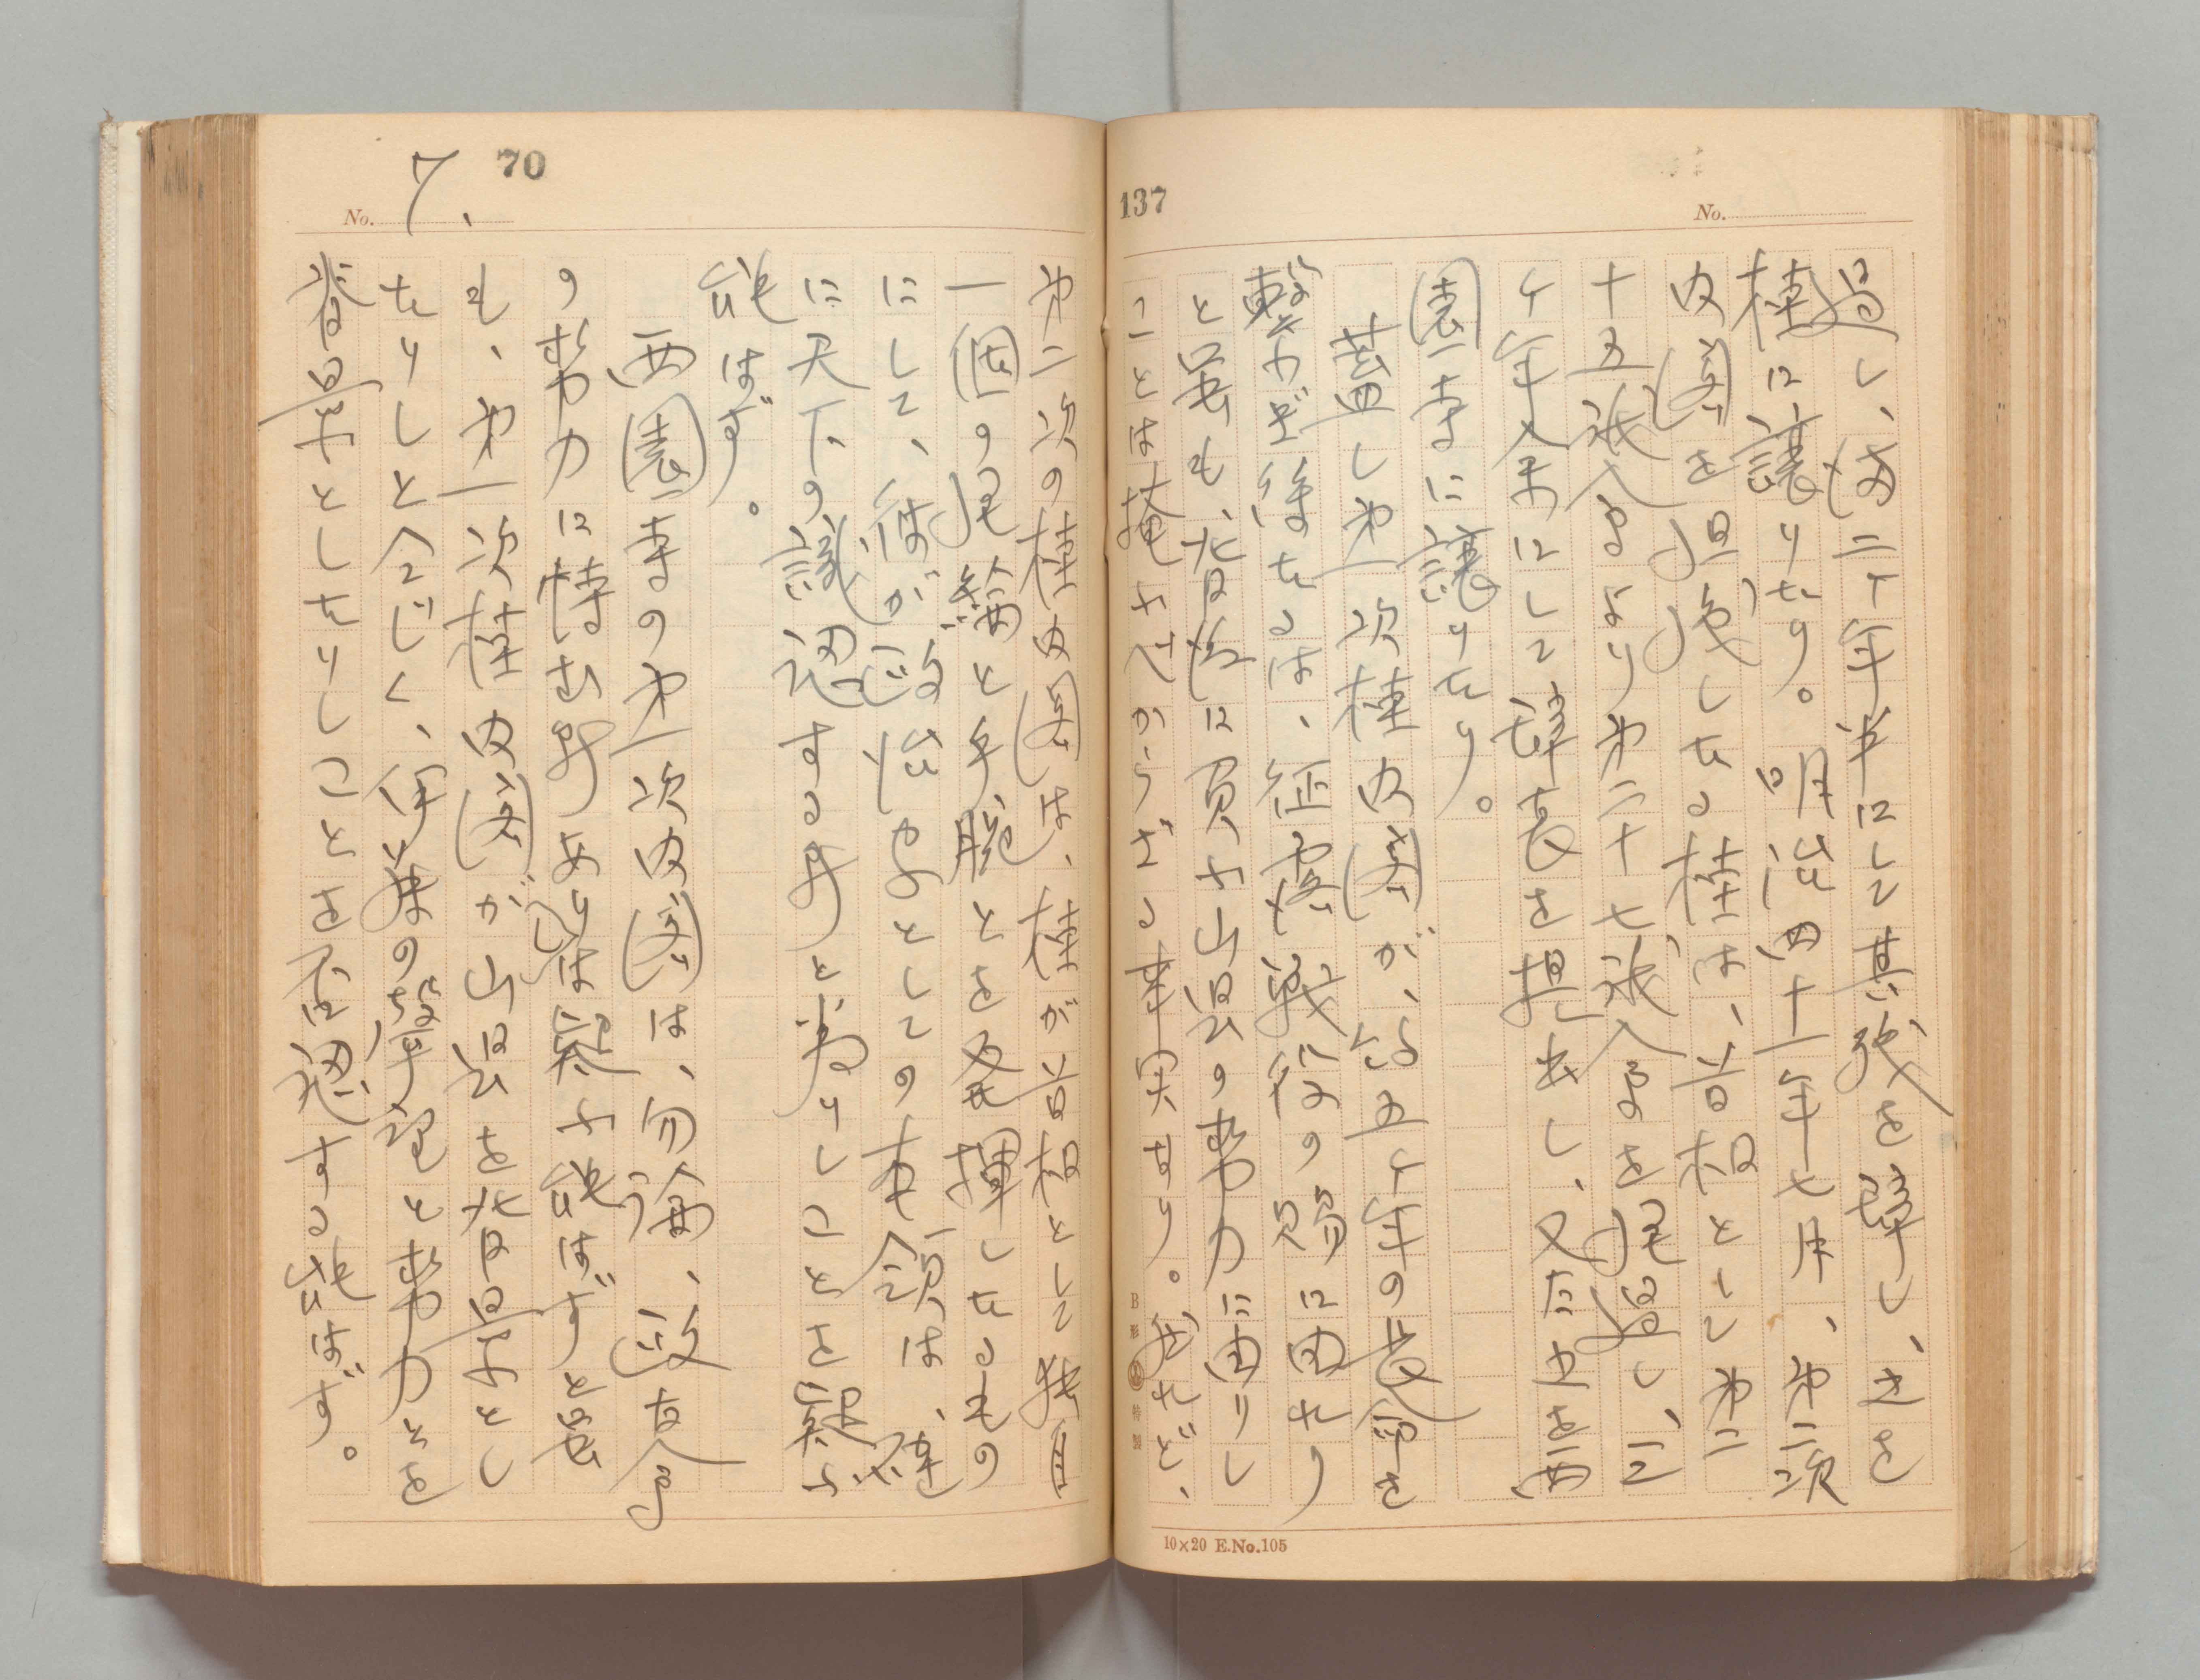 137
No.
過し、満二ケ年半にして其職を辞し、之を
桂に譲りたり。明治四十一年七月、第二次
内閣を担任したる桂は、首相として第二
十五議会より第二十七議会を経過し、三
ケ年余にして辞表を提出し、又た之を西
園寺に譲りたり。
蓋し第一次桂内閣が、約五ケ年の長命を
繋ぎ得たるは、征露戦役の賜に因れり
と雖も、北背後に負ふ山県の勢力に因りし
ことは掩ふべからざる事実なり。然れど、
B形 特製
10×20 E.No.105
70
No. 7.
第二次の桂内閣は、桂が首相として独自
一個の経綸と手腕とを発揮したるもの
にして、彼が政治家としての本領は、確
に天下の認識する所と為りしことを疑ふ
能はず。
西園寺の第一次内閣は、勿論、政友会
の勢力に恃む所ありしは疑ふ能はずと雖
も、第一次桂内閣が山県を背景とし
たりしと仝じく、伊藤の声望と勢力とを
背景としたりしことを否認する能はず。